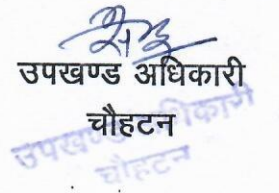 उपखण्ड अधिकारी
चौहटन
उपखण्ड अधिकारी
चौहटन